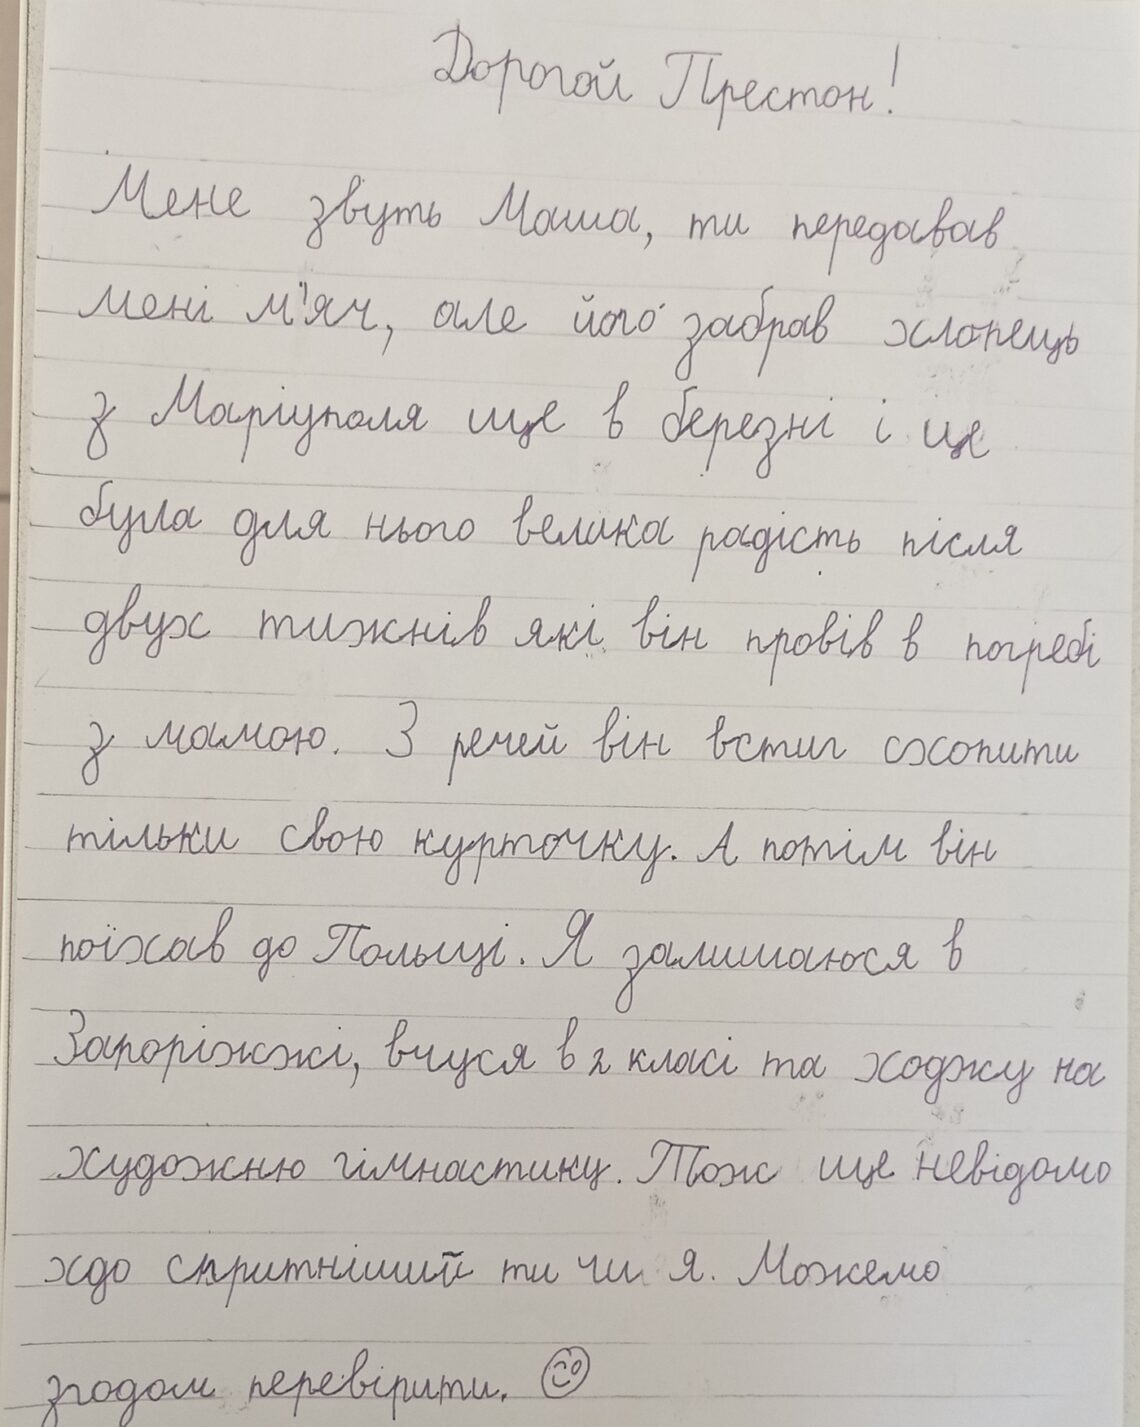 Дорогой Престон!
Мене звуть Маша, ти передавав
мені м'яч, але його забрав хлопець
з Маріуполя ще в березні і це
була для нього велика радість після
двух тижнів які він провів в погребі
з мамою. З речей він встиг схопити
тільки свою курточку. А потім він
поїхав до Польщі. Я залишаюся в
Запоріжжі, вчуся в 2 класі та ходжу на
художню гімнастику. Тож ще невідомо
хдо спритніший ти чи я. Можемо
згодом перевірити.